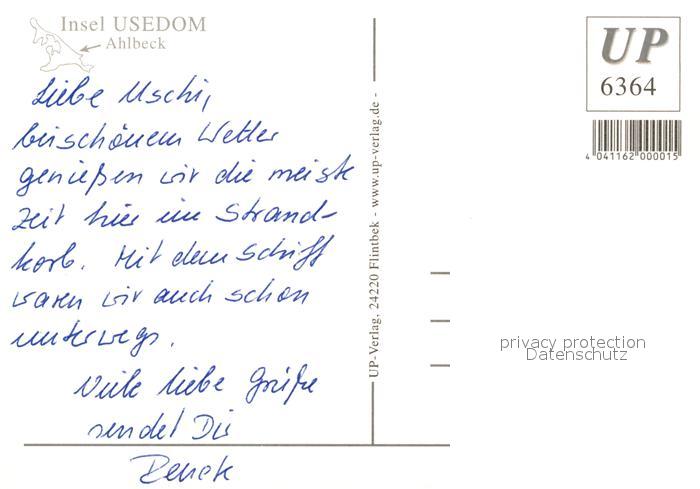 Insel USEDOM
Ahlbeck
Liebe Uschi,
bei schönem Wetter
genießen wir die meiste
Zeit hier im Strand-
korb. Mit dem Schiff
waren wir auch schon
unterwegs.
Viele liebe Grüße
sendet Dir
UP-Verlag, 24220 Flintbek - www.up-verlag.de -
UP
6364
4 041162 000015
privacy protection
Datenschutz